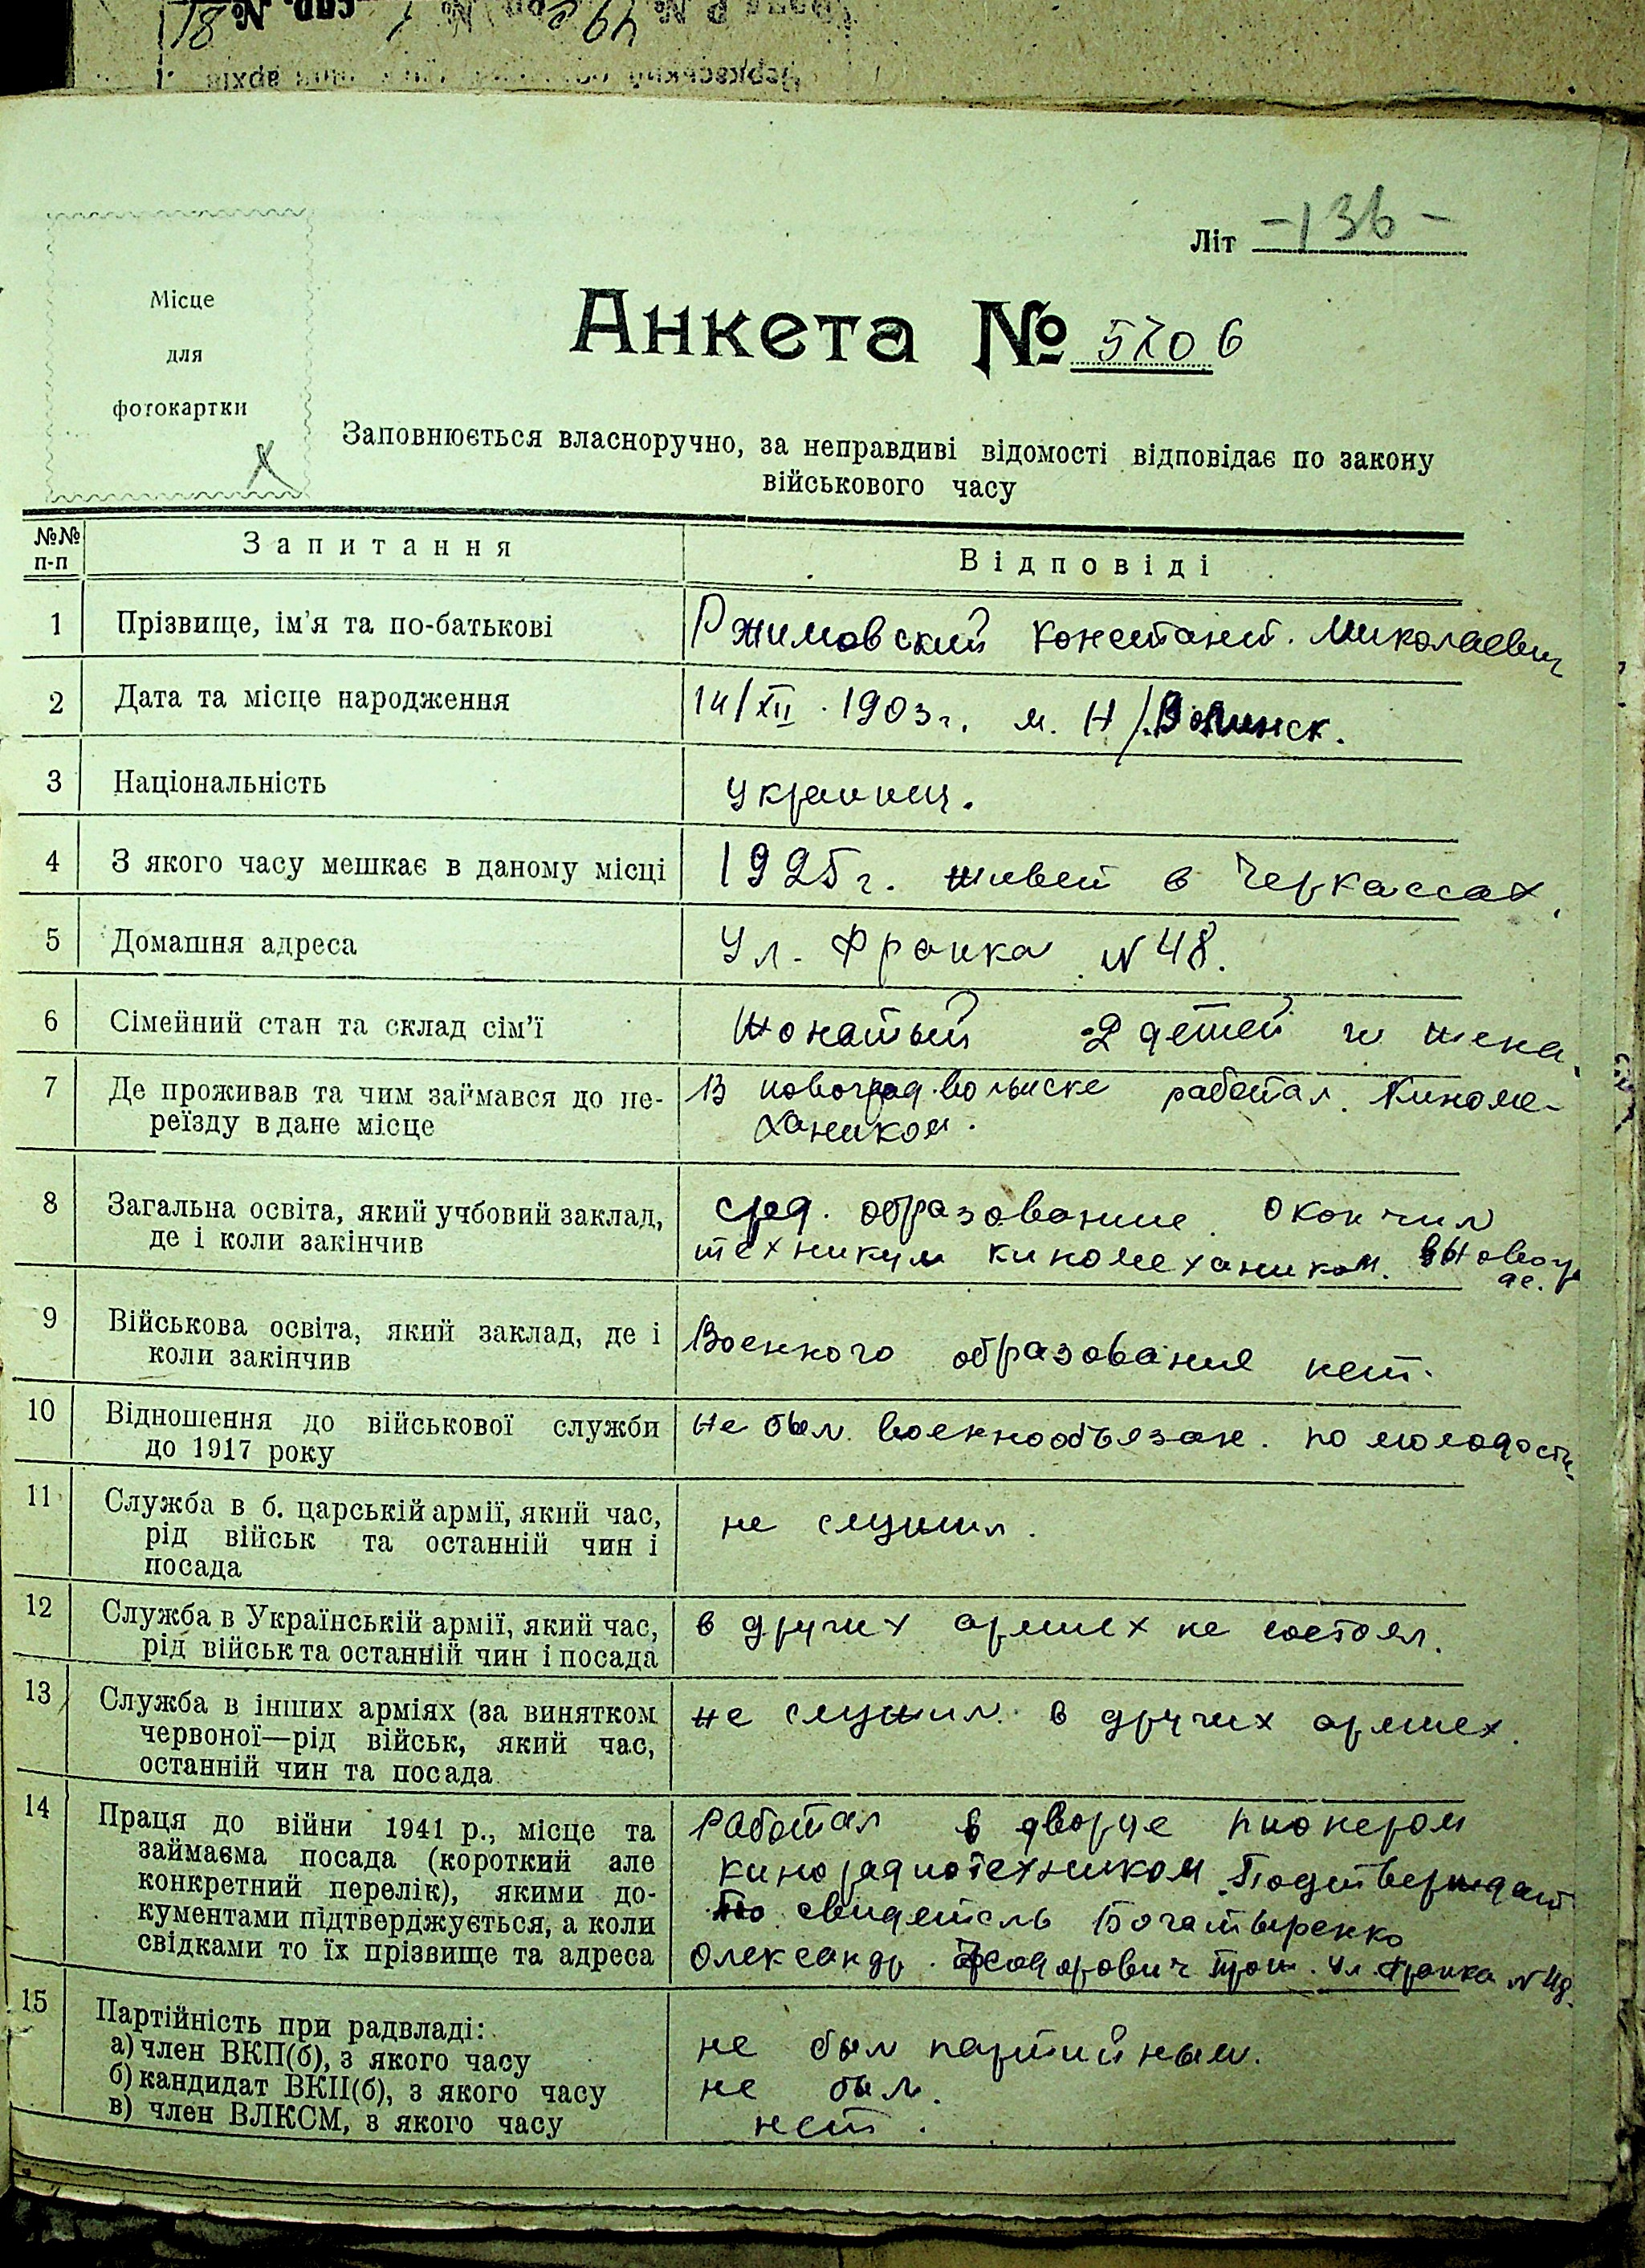 Літ -136-
Місце
для
фотокартки
Анкета № 5206
Заповнюється власноручно, за неправдиві відомості відповідає по закону
військового часу
№№
п-п
Запитання
Відповіді
1 Прізвище, ім'я та по-батькові
Ржимовский Констант. Миколаевич
2 Дата та місце народження
14/XII. 1903 г. м. Н/.Волинск.
3 Національність
украинец.
4 З якого часу мешкає в даному місці
1925 г. живет в Черкассах.
5 Домашня адреса
Ул. Франка N 48.
6 Сімейний стан та склад сім'ї
Жонатый 2 детей и жена.
7 Де проживав та чим займався до пе-
реїзду в дане місце
В новоград.волынске работал. Киноме-
хаником.
8 Загальна освіта, який учбовий заклад,
де і коли закінчив
сред. образование. окончил
техникум киномехаником.
9 Військова освіта, який заклад, де і
коли закінчив
Военного образования нет.
10 Відношення до військової служби
до 1917 року
Не был. военнообьязан. по молодости.
11 Служба в б. царській армії, який час,
рід військ та останній чин і
посада
не служил.
12 Служба в Українській армії, який час,
рід військ та останній чин і посада
в других армиех не состоял.
13 Служба в інших арміях (за винятком
червоної—рід військ, який час,
останній чин та посада
не служил. в других армиех.
14 Праця до війни 1941 р., місце та
займаєма посада (короткий але
конкретний перелік), якими до-
кументами підтверджується, а коли
свідками то їх прізвище та адреса
Работал в дворце пионером
кинорадиотехником. Подтверждает
свидетель Богатыренко
Олександр. Феодорович ул. Франка N 48.
15 Партійність при радвладі:
а) член ВКП(б), з якого часу
б) кандидат ВКП(б), з якого часу
в) член ВЛКСМ, з якого часу
не был партийным.
не был.
нет.